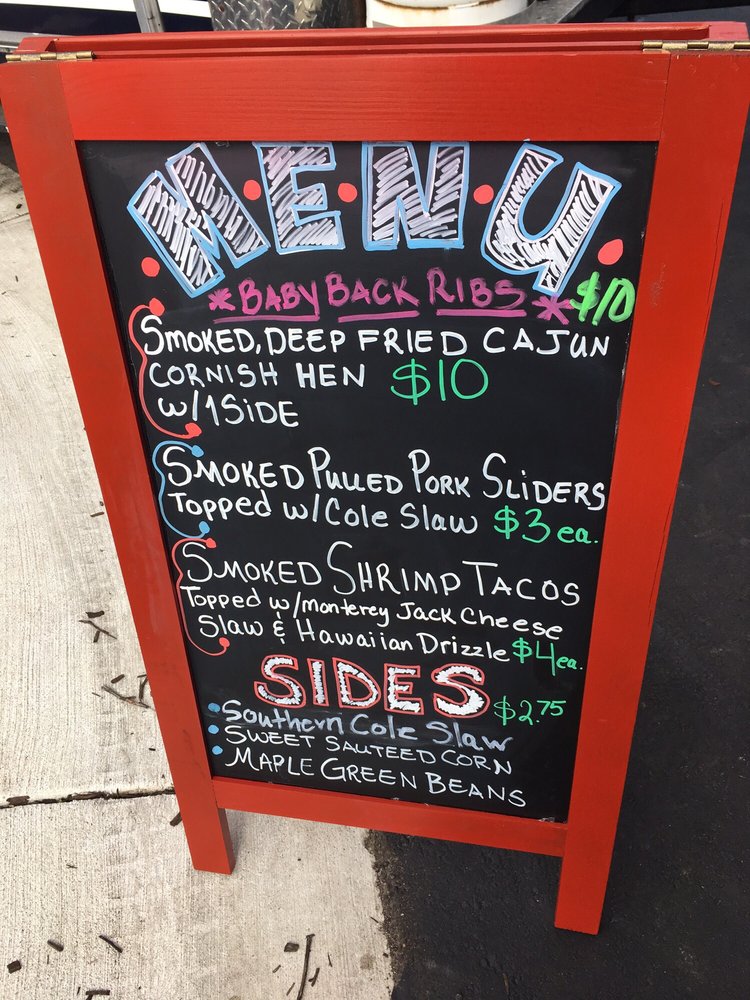 MENU
*BABY BACK RIBS* $10
SMOKED, DEEP FRIED CAJUN
CORNISH HEN $10
W/1 SIDE
SMOKED PULLED PORK SLIDERS
Topped w/Cole Slaw $3 ea.
SMOKED SHRIMP TACOS
Topped w/monterey Jack Cheese
Slaw & Hawaiian Drizzle $4 ea.
SIDES $2.75
• Southern Cole Slaw
• SWEET SAUTEED CORN
• MAPLE GREEN BEANS